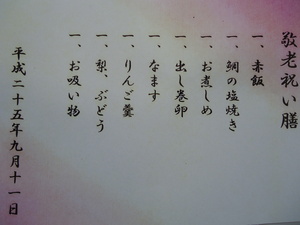 敬老祝い膳
一、赤飯
一、鯛の塩焼き
一、お煮しめ
一、出し巻卵
一、なます
一、りんご羹
一、梨、ぶどう
一、お吸い物
平成二十五年九月十一日